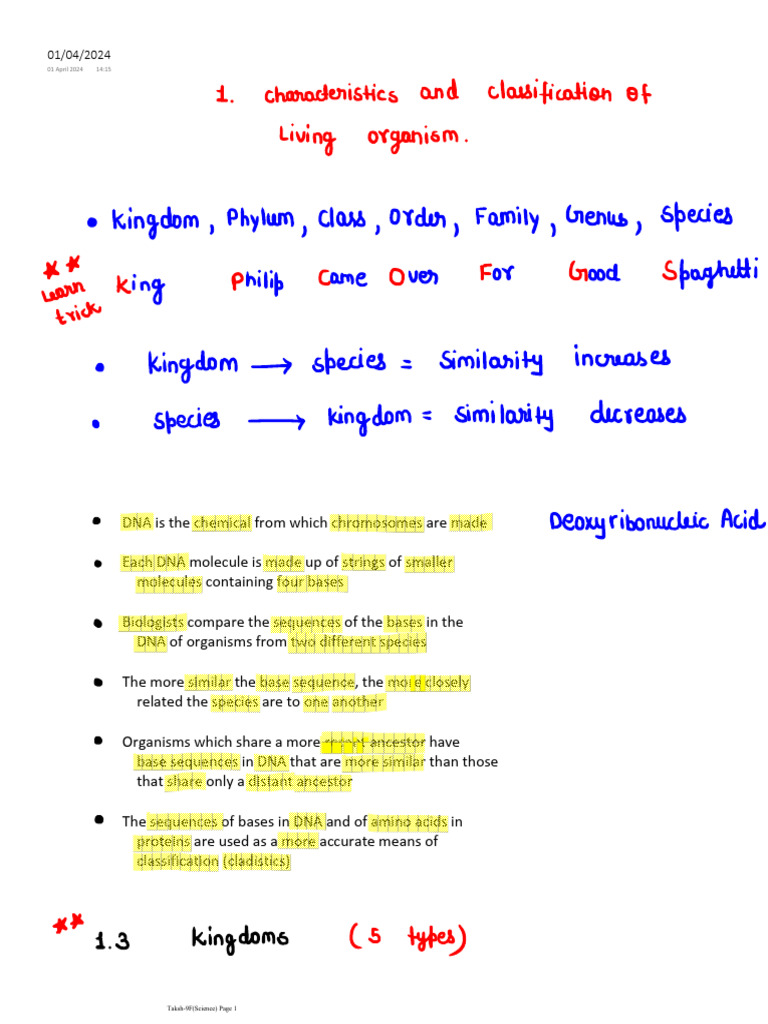 01/04/2024
01 April 2024 14:15
1. Characteristics and classification of
Living organism.
• Kingdom, Phylum, Class, Order, Family, Genus, Species
Learn trick
King Philip Came Over For Good Spaghetti
• Kingdom → species = Similarity increases
• Species → kingdom = similarity decreases
• DNA is the chemical from which chromosomes are made
Deoxyribonucleic Acid
• Each DNA molecule is made up of strings of smaller
molecules containing four bases
• Biologists compare the sequences of the bases in the
DNA of organisms from two different species
• The more similar the base sequence, the more closely
related the species are to one another
• Organisms which share a more recent ancestor have
base sequences in DNA that are more similar than those
that share only a distant ancestor
• The sequences of bases in DNA and of amino acids in
proteins are used as a more accurate means of
classification (cladistics)
1.3 Kingdoms (5 types)
Taksh-9F(Science) Page 1